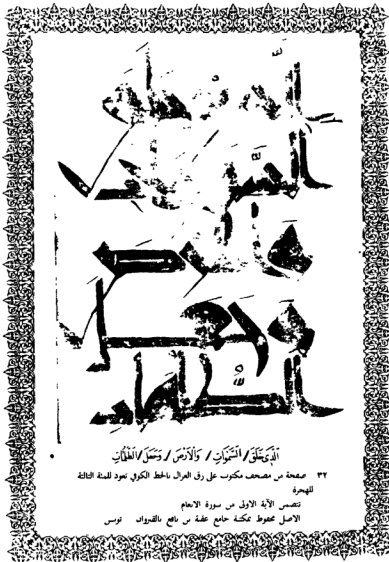 الذى خلق
السموت
والارض
وجعل
الظلمات
الَّذِي خَلَقَ / السَّمَوَاتِ / وَالْأَرْضَ / وَجَعَلَ / الظُّلُمَاتِ
٣٢ صفحة من مصحف مكتوب على رق الغزال بالخط الكوفي تعود للمئة الثالثة
للهجرة
تتضمن الآية الاولى من سورة الانعام
الاصل محفوظ بمكتبة جامع عقبة بن نافع بالقيروان تونس